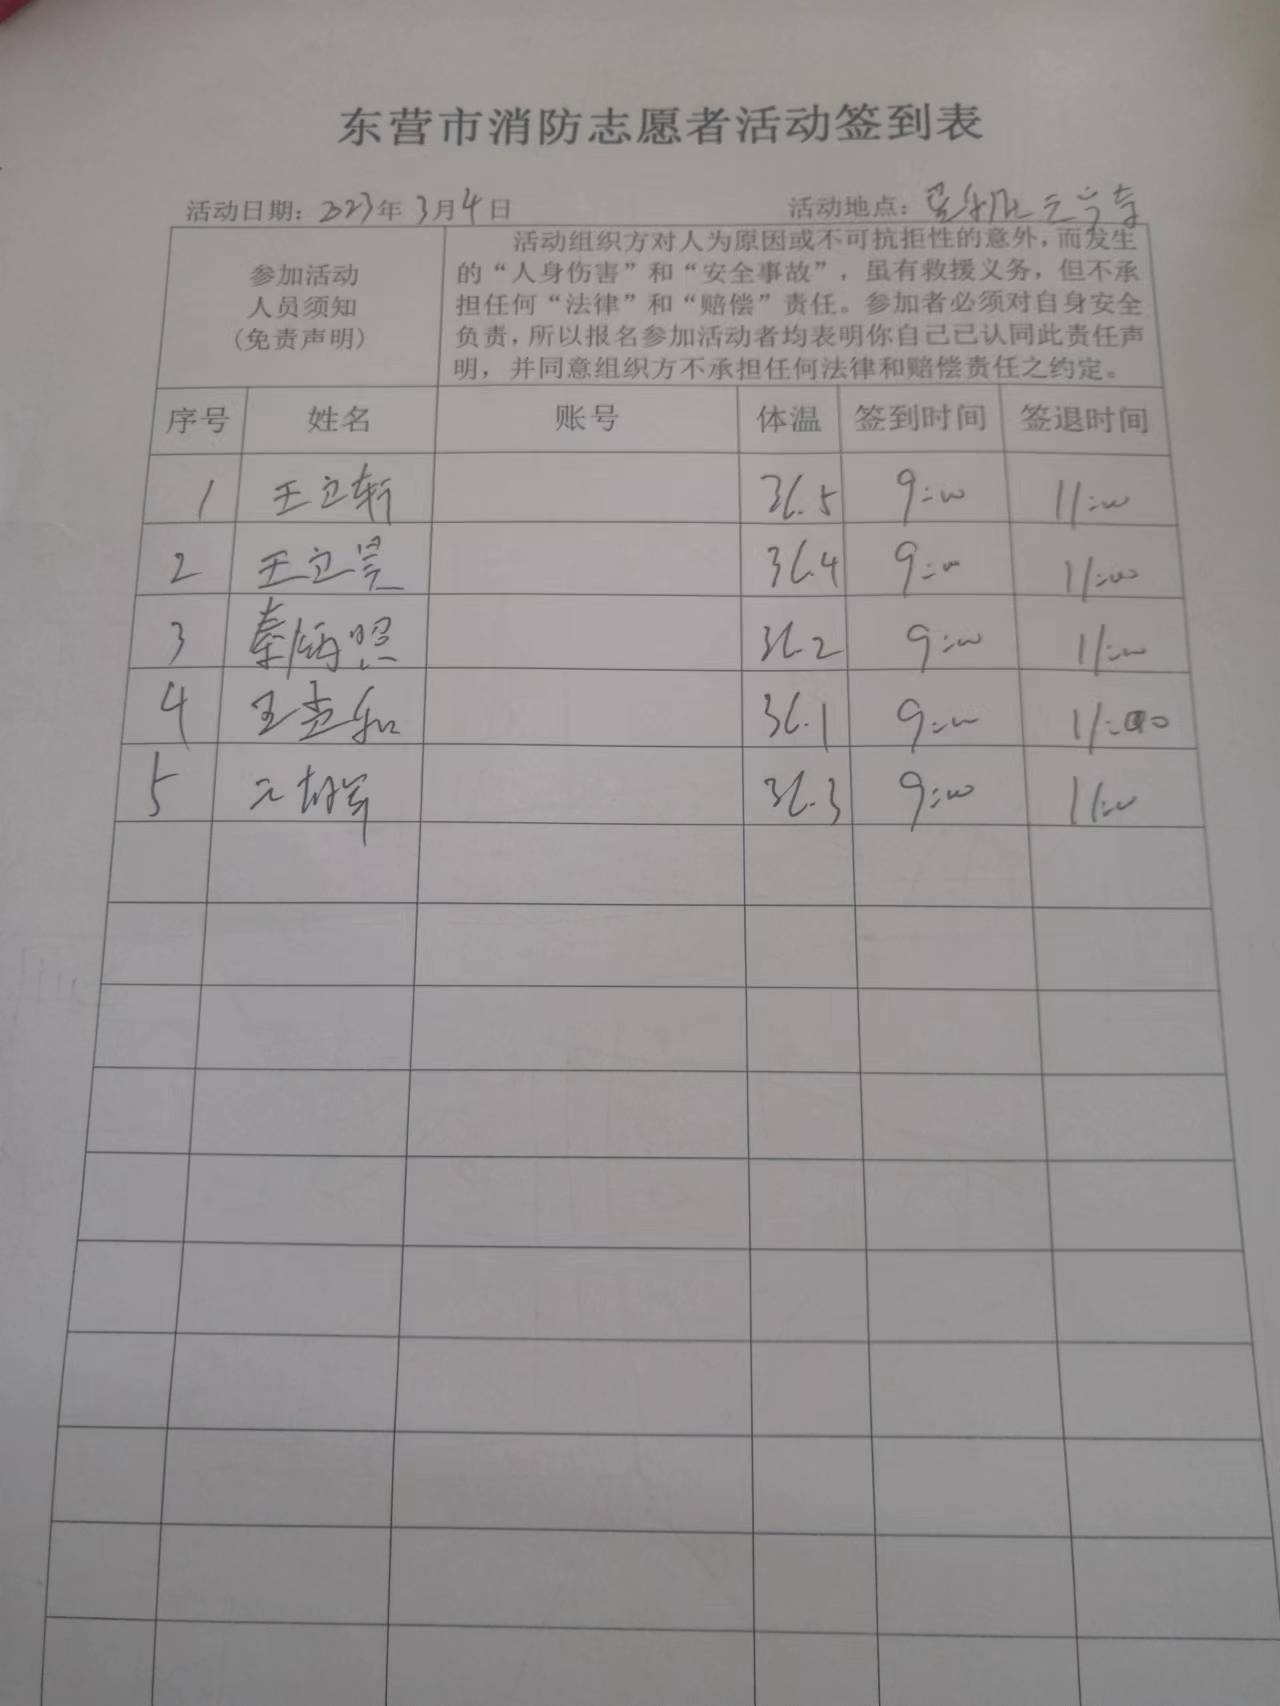 东营市消防志愿者活动签到表
活动日期：2023年3月4日 活动地点：
参加活动
人员须知
（免责声明）
活动组织方对人为原因或不可抗拒性的意外，而发生
的“人身伤害”和“安全事故”，虽有救援义务，但不承
担任何“法律”和“赔偿”责任。参加者必须对自身安全
负责，所以报名参加活动者均表明你自己已认同此责任声
明，并同意组织方不承担任何法律和赔偿责任之约定。
序号 姓名 账号 体温 签到时间 签退时间
1 王立轩 36.5 9:00 11:00
2 王立昊 36.4 9:00 11:00
3 秦炳照 36.2 9:00 11:00
4 王 36.1 9:00 11:00
5 36.3 9:00 11:00